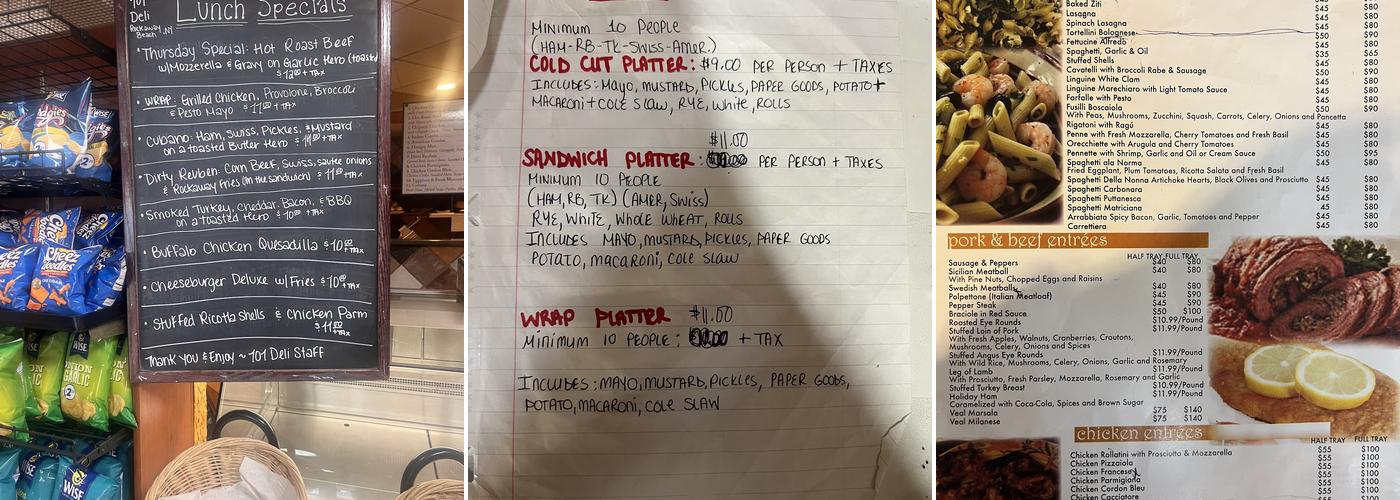 101
Deli
Rockaway
Beach, NY
Lunch Specials
• Thursday Special: Hot Roast Beef
w/Mozzerella & Gravy on Garlic Hero (toasted
$12.00 + TAX
• WRAP: Grilled Chicken, Provolone, Broccoli
& Pesto Mayo $11.00 + TAX
• Cubano: Ham, Swiss, Pickles, & Mustard
on a toasted Butter Hero + TAX
• Dirty Reuben: Corn Beef, Swiss, saute onions
& Rockaway Fries (in the sandwich) $11.00 + TAX
• Smoked Turkey, Cheddar, Bacon, & BBQ
on a toasted Hero $10.00 + TAX
• Buffalo Chicken Quesadilla $10.00 + TAX
• Cheeseburger Deluxe w/ Fries $10.00 + TAX
• Stuffed Ricotta Shells & Chicken Parm
$11.00 + TAX
Thank you & Enjoy ~ 101 Deli Staff
Cheez
Doodles
WISE
ONION
GARLIC
WISE
Minimum 10 People
(HAM-RB-TK-Swiss-Amer.)
COLD CUT PLATTER: $9.00 PER PERSON + TAXES
INCLUDES: Mayo, MUSTARD, PICKLES, PAPER GOODS, POTATO+
MACARONI + COLE SLAW, RYE, White, ROLLS
$11.00
SANDWICH PLATTER: PER PERSON + TAXES
MINIMUM 10 PEOPLE
(HAM, RB, TK) (AMER, Swiss)
RYE, WHITE, WHOLE WHEAT, ROLLS
INCLUDES MAYO, MUSTARD, PICKLES, PAPER GOODS
POTATO, MACARONI, COLE SLAW
WRAP PLATTER $11.00
Minimum 10 PEOPLE: + TAX
INCLUDES: MAYO, MUSTARD, PICKLES, PAPER GOODS,
POTATO, MACARONI, COLE SLAW
Baked Ziti $45 $80
Lasagna $45 $80
Spinach Lasagna $45 $80
Tortellini Bolognese $50 $90
Fettucine Alfredo $45 $80
Spaghetti, Garlic & Oil $35 $65
Stuffed Shells $45 $80
Cavatelli with Broccoli Rabe & Sausage $50 $90
Linguine White Clam $45 $80
Linguine Marechiaro with Light Tomato Sauce $45 $80
Farfalle with Pesto $45 $80
Fusilli Boscaiola $50 $90
With Peas, Mushrooms, Zucchini, Squash, Carrots, Celery, Onions and Pancetta
Rigatoni with Ragú $45 $80
Penne with Fresh Mozzarella, Cherry Tomatoes and Fresh Basil $45 $80
Orecchiette with Arugula and Cherry Tomatoes $45 $80
Pennette with Shrimp, Garlic and Oil or Cream Sauce $50 $95
Spaghetti ala Norma $45 $80
Fried Eggplant, Plum Tomatoes, Ricotta Salata and Fresh Basil
Spaghetti Della Nonna Artichoke Hearts, Black Olives and Prosciutto $45 $80
Spaghetti Carbonara $45 $80
Spaghetti Puttanesca $45 $80
Spaghetti Matriciana 45 $80
Arrabbiata Spicy Bacon, Garlic, Tomatoes and Pepper $45 $80
Carrettiera $45 $80
pork & beef entrées
HALF TRAY FULL TRAY
Sausage & Peppers $40 $80
Sicilian Meatball $40 $80
With Pine Nuts, Chopped Eggs and Raisins
Swedish Meatballs $40 $80
Polpettone (Italian Meatloaf) $45 $90
Pepper Steak $45 $90
Braciole in Red Sauce $50 $100
Roasted Eye Rounds $10.99/Pound
Stuffed Loin of Pork $11.99/Pound
With Fresh Apples, Walnuts, Cranberries, Croutons,
Mushrooms, Celery, Onions and Spices
Stuffed Angus Eye Rounds $11.99/Pound
With Wild Rice, Mushrooms, Celery, Onions, Garlic and Rosemary
Leg of Lamb $11.99/Pound
With Prosciutto, Fresh Parsley, Mozzarella, Rosemary and Garlic
Stuffed Turkey Breast $10.99/Pound
Holiday Ham $11.99/Pound
Caramelized with Coca-Cola, Spices and Brown Sugar
Veal Marsala $75 $140
Veal Milanese $75 $140
chicken entrées
HALF TRAY FULL TRAY
Chicken Rollatini with Prosciutto & Mozzarella $55 $100
Chicken Pizzaiola $55 $100
Chicken Francese $55 $100
Chicken Parmigiana $55 $100
Chicken Cordon Bleu $55 $100
Chicken Cacciatore $55 $100